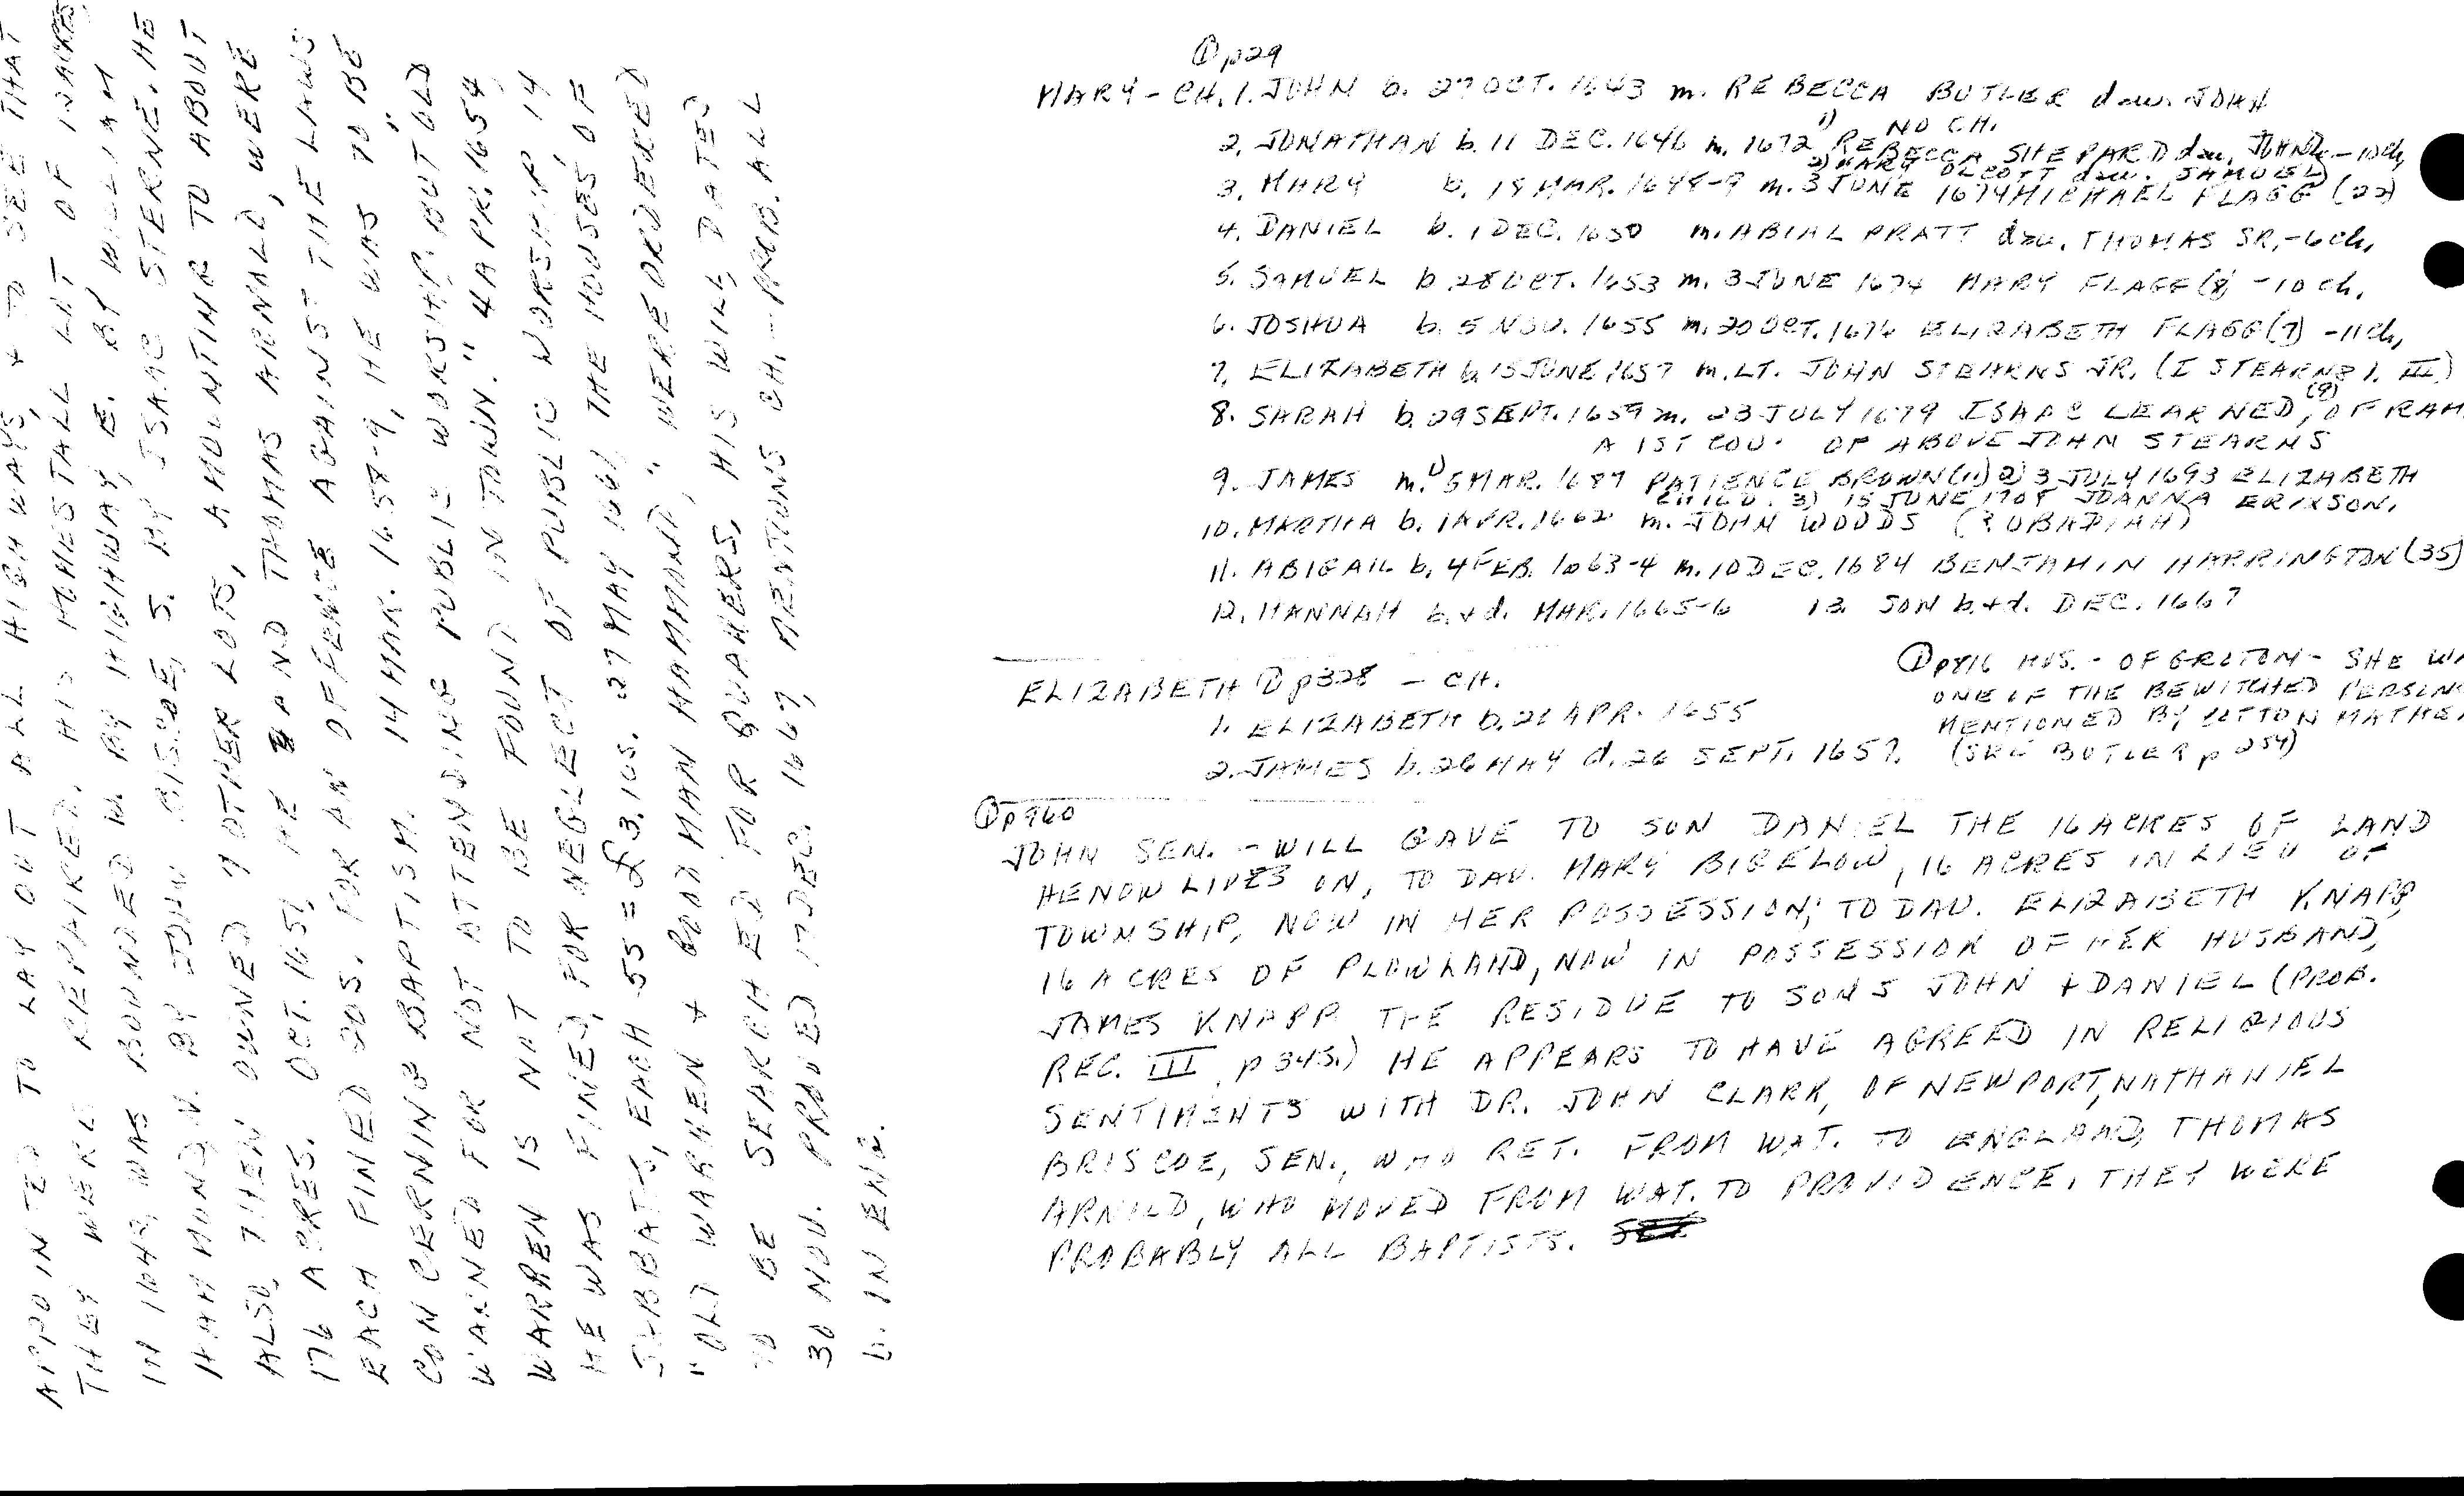 APPOINTED TO LAY OUT ALL HIGHWAYS, & TO SEE THAT
THEY WERE REPAIRED. HIS HOMESTALL LOT OF 12 ACRES
IN 1642, WAS BOUNDED W. BY HIGHWAY, E. BY WILLIAM
HAMMOND, N. BY JOHN BISCOE, S. BY ISAAC STERNE. HE
ALSO THEN OWNED 7 OTHER LOTS, AMOUNTING TO ABOUT
176 ACRES. OCT. 1651, HE AND THOMAS ARNALD, WERE
EACH FINED 20S. FOR AN OFFENCE AGAINST THE LAWS
CONCERNING BAPTISM. 14 MAR. 1658-9, HE WAS TO BE
WARNED FOR NOT ATTENDING PUBLIC WORSHIP, BUT "OLD
WARREN IS NOT TO BE FOUND IN TOWN." 4 APR. 1654
HE WAS FINED, FOR NEGLECT OF PUBLIC WORSHIP, 14
SABBATHS, EACH 5S = £3.10S. 27 MAY 1661, THE HOUSES OF
"OLD WARREN & GOODMAN HAMMOND," WERE ORDERED
TO BE SEARCHED FOR QUAKERS. HIS WILL, DATED
30 NOV. PROVED 17 DEC. 1667, MENTIONS CH. - PROB. ALL
b. IN ENG.
① p29
MARY - CH. 1. JOHN b. 27 OCT. 1643 m. REBECCA BUTLER dau. JOHN
NO CH.
2. JONATHAN b. 11 DEC. 1646 m. 1672 1) REBECCA SHEPARD dau. JOHN - 10 ch.
2) MARY OLCOTT dau. SAMUEL)
3. MARY b. 18 MAR. 1648-9 m. 3 JUNE 1674 MICHAEL FLAGG (22)
4. DANIEL b. 1 DEC. 1650 m. ABIAL PRATT dau. THOMAS SR. - 6 ch.
5. SAMUEL b. 28 OCT. 1653 m. 3 JUNE 1674 MARY FLAGG (8) - 10 ch.
6. JOSHUA b. 5 NOV. 1655 m. 20 OCT. 1676 ELIZABETH FLAGG (7) - 11 ch.
7. ELIZABETH b. 15 JUNE 1657 m. LT. JOHN STEARNS JR. (I STEARNS 1. III)
8. SARAH b. 29 SEPT. 1659 m. 23 JULY 1679 ISAAC LEARNED, (9) OF FRAM.
A 1ST COU. OF ABOVE JOHN STEARNS
9. JAMES m. 1) 5 MAR. 1687 PATIENCE BROWN (11) 2) 3 JULY 1693 ELIZABETH
CHILD. 3) 15 JUNE 1708 JOANNA ERIXSON.
10. MARTHA b. 1 APR. 1662 m. JOHN WOODS (? OBADIAH)
11. ABIGAIL b. 4 FEB. 1663-4 m. 10 DEC. 1684 BENJAMIN HARRINGTON (35)
12. HANNAH b. & d. MAR. 1665-6 13. SON b. & d. DEC. 1667
ELIZABETH ① p328 - CH.
1. ELIZABETH b. 21 APR. 1655
2. JAMES b. 26 MAY d. 26 SEPT. 1657.
① p816 HUS. - OF GROTON - SHE WA
ONE OF THE BEWITCHED PERSONS
MENTIONED BY COTTON MATHE
(SEE BUTLER p 254)
① p960
JOHN SEN. - WILL GAVE TO SON DANIEL THE 16 ACRES OF LAND
HE NOW LIVES ON, TO DAU. MARY BIGELOW, 16 ACRES IN LIEU OF
TOWNSHIP, NOW IN HER POSSESSION; TO DAU. ELIZABETH KNAPP,
16 ACRES OF PLOWLAND, NOW IN POSSESSION OF HER HUSBAND,
JAMES KNAPP THE RESIDUE TO SONS JOHN & DANIEL (PROB.
REC. III, p 345.) HE APPEARS TO HAVE AGREED IN RELIGIOUS
SENTIMENTS WITH DR. JOHN CLARK, OF NEWPORT, NATHANIEL
BRISCOE, SEN., WHO RET. FROM WAT. TO ENGLAND, THOMAS
ARNOLD, WHO MOVED FROM WAT. TO PROVIDENCE. THEY WERE
PROBABLY ALL BAPTISTS.